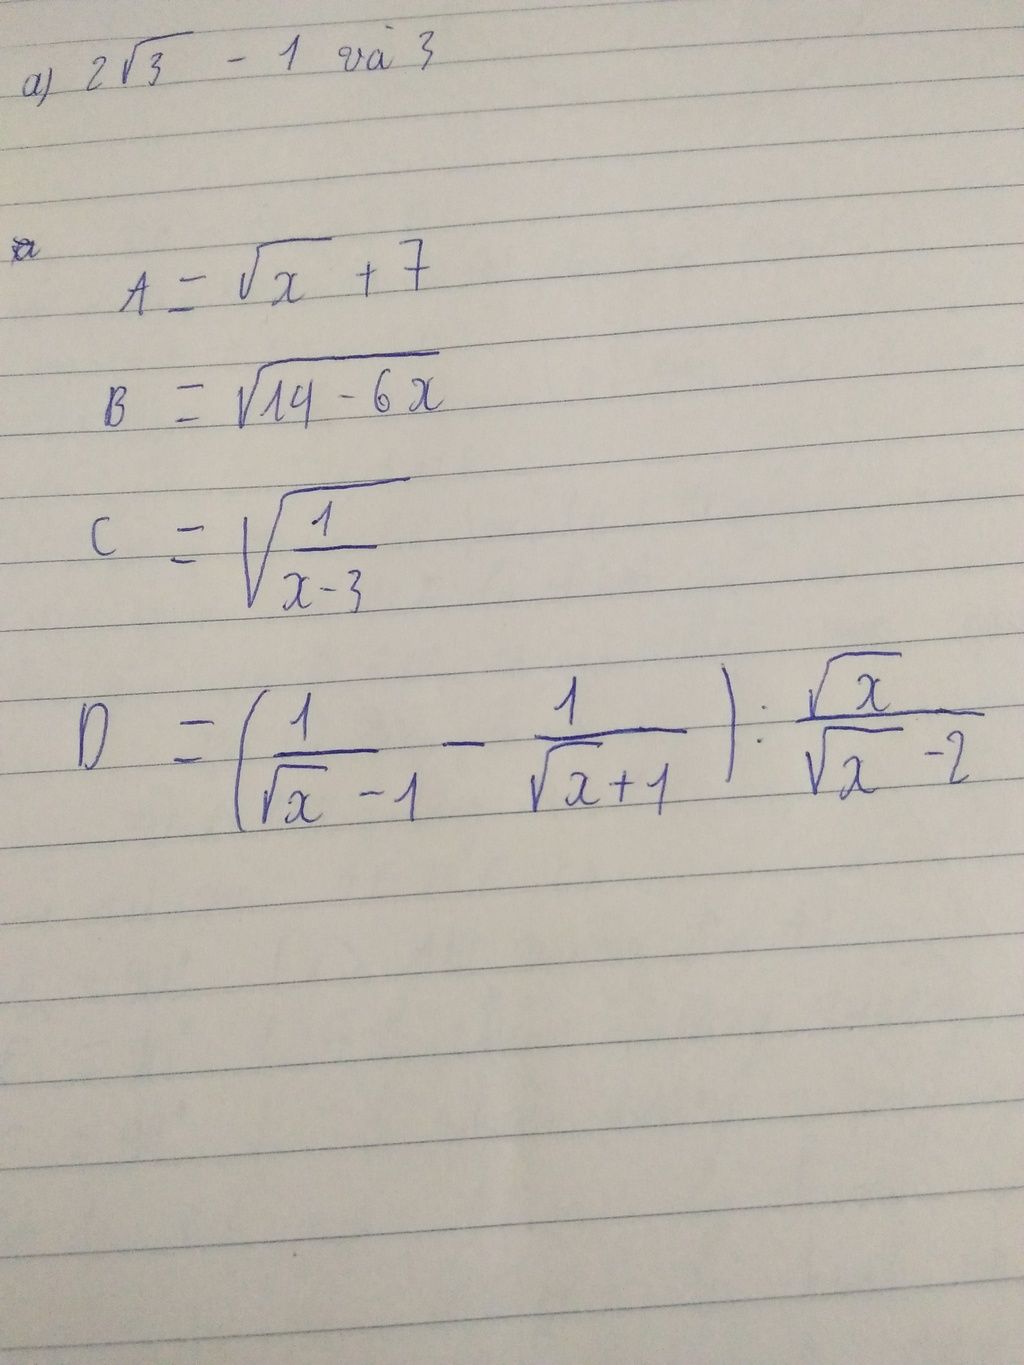 a) 2√3 - 1 và 3
a
A = √x + 7
B = √(14 - 6x)
C = √(1/(x-3))
D = (1/(√x - 1) - 1/(√x + 1)) : √x/(√x - 2)